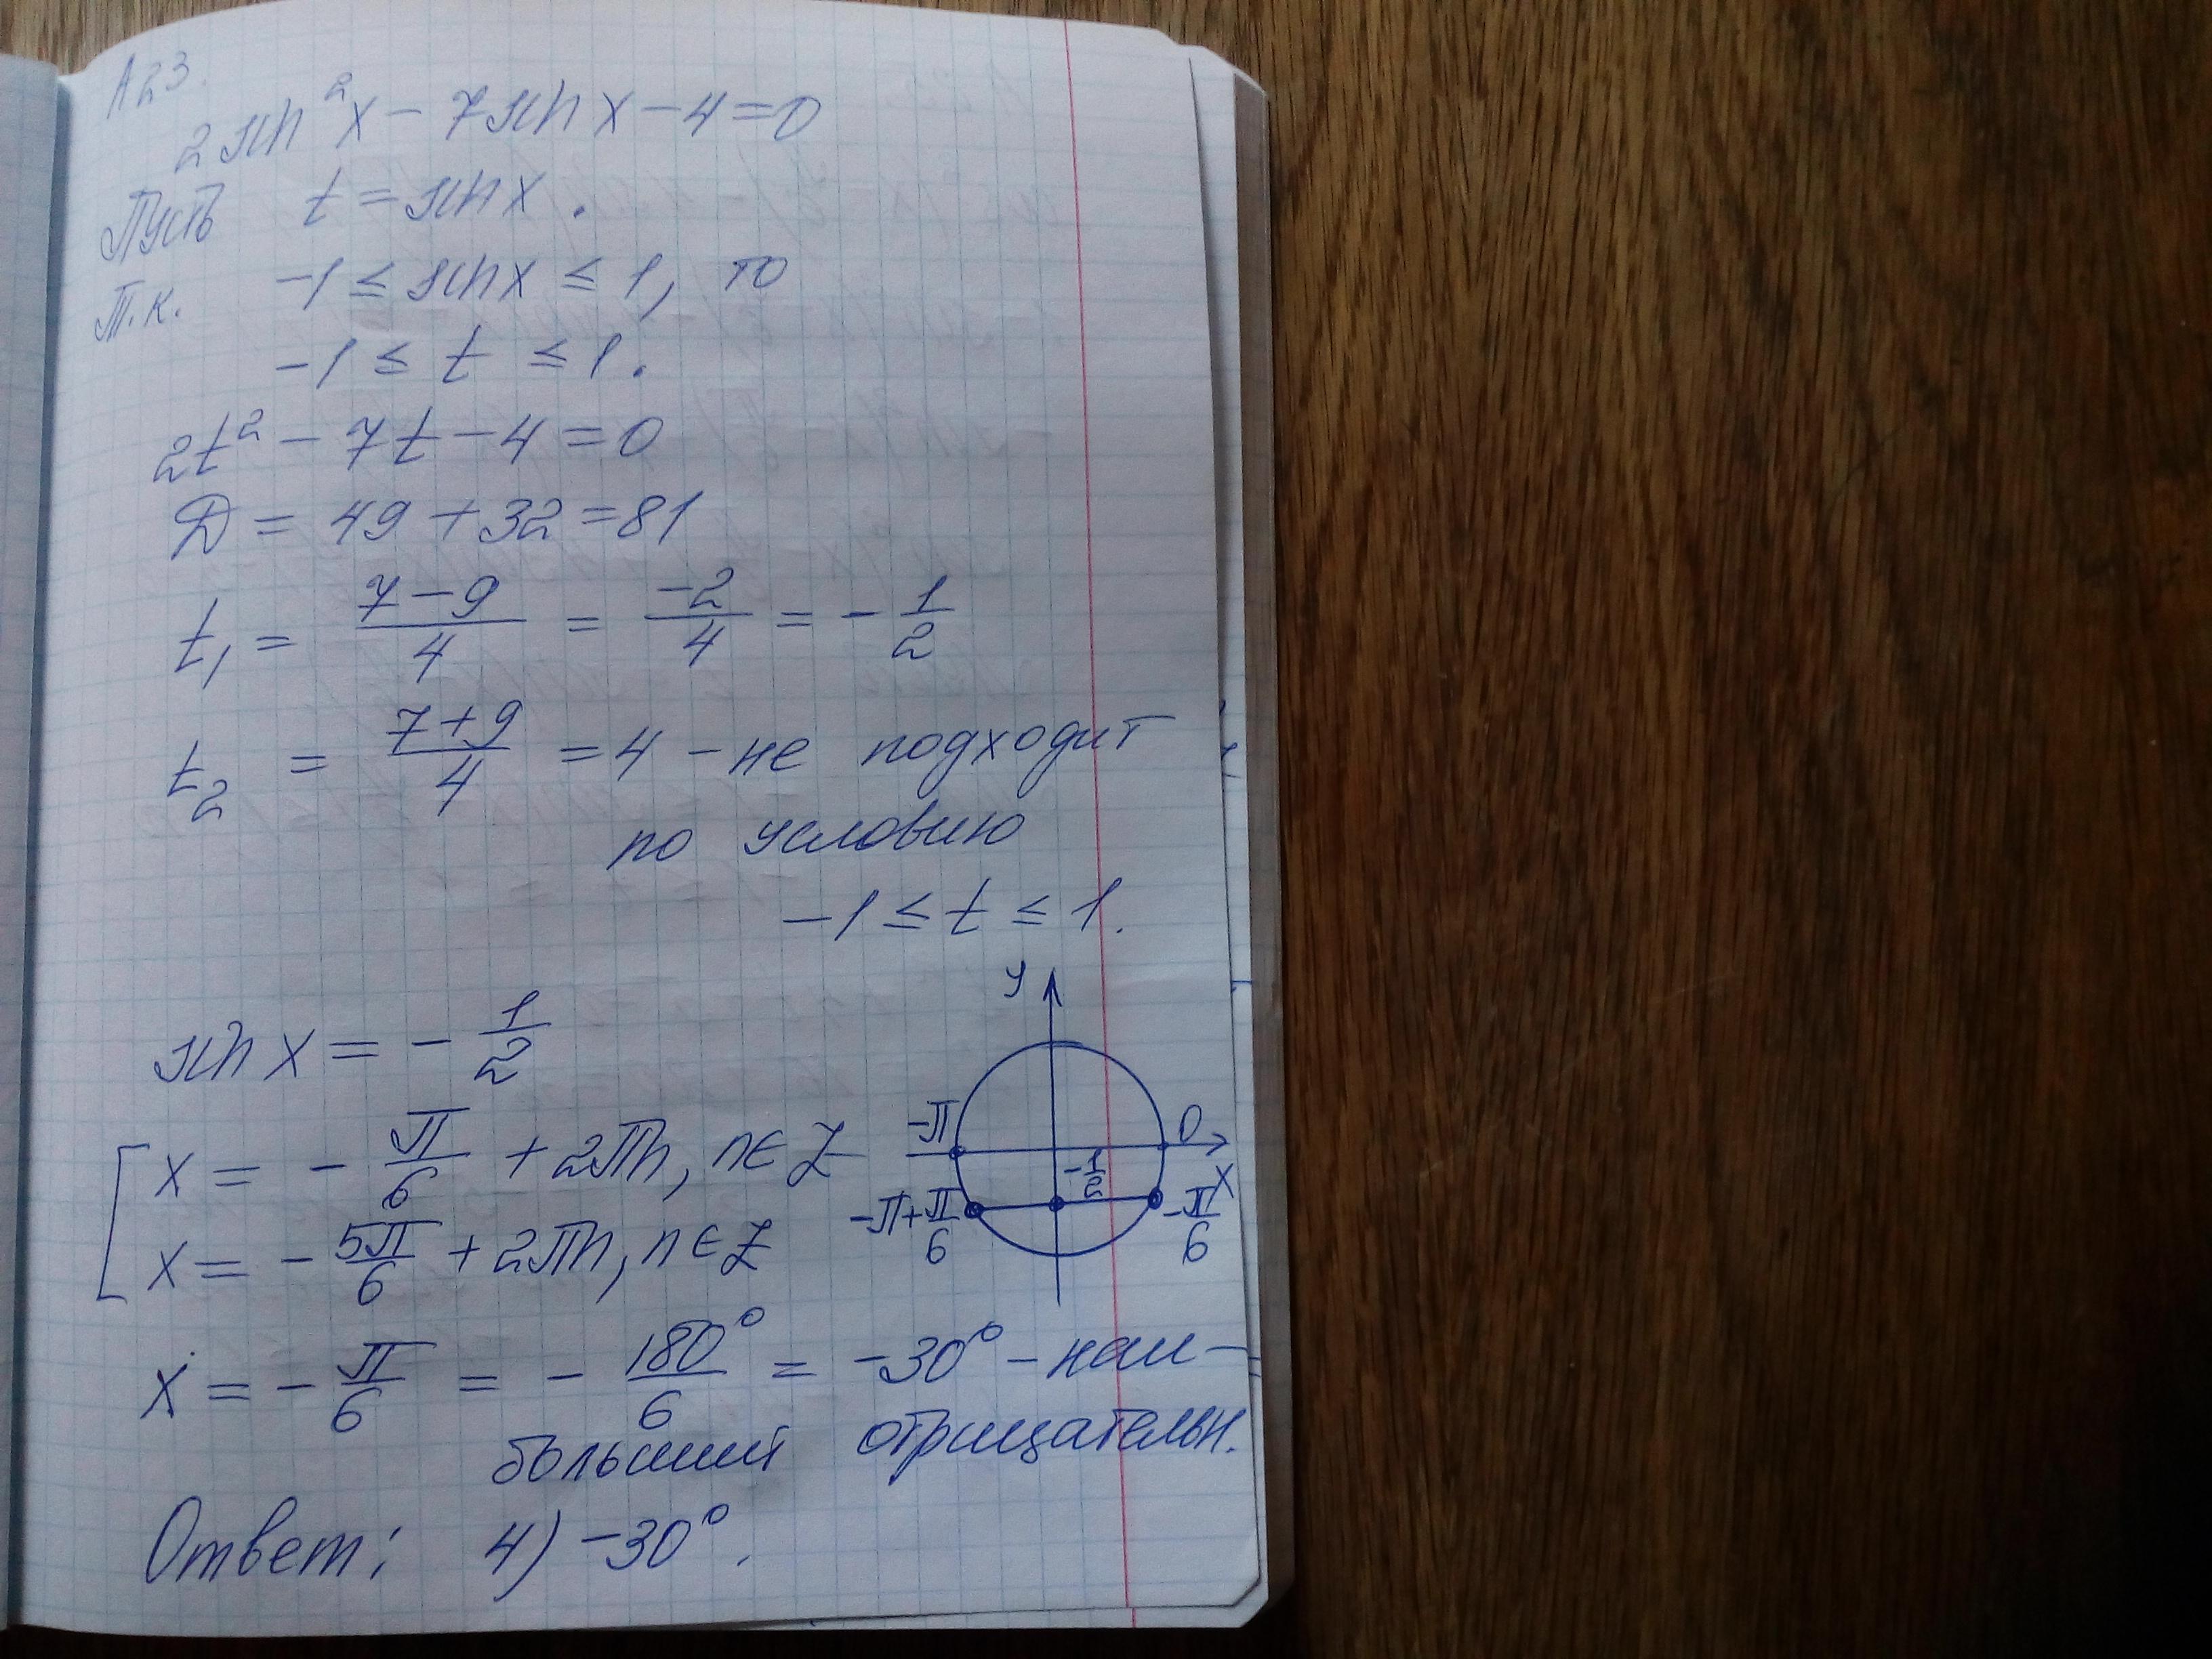 А23.
2 sin²x - 7 sin x - 4 = 0
Пусть t = sin x.
Т.к. -1 ≤ sin x ≤ 1, то
-1 ≤ t ≤ 1.
2t² - 7t - 4 = 0
D = 49 + 32 = 81
t₁ = (7-9)/4 = -2/4 = -1/2
t₂ = (7+9)/4 = 4 - не подходит
по условию
-1 ≤ t ≤ 1.
sin x = -1/2
x = -π/6 + 2πn, n∈Z
x = -5π/6 + 2πn, n∈Z
y
-π
0
-1/2
x
-π+π/6
-π/6
x = -π/6 = -180°/6 = -30° - наи-
больший отрицательн.
Ответ: 4) -30°.